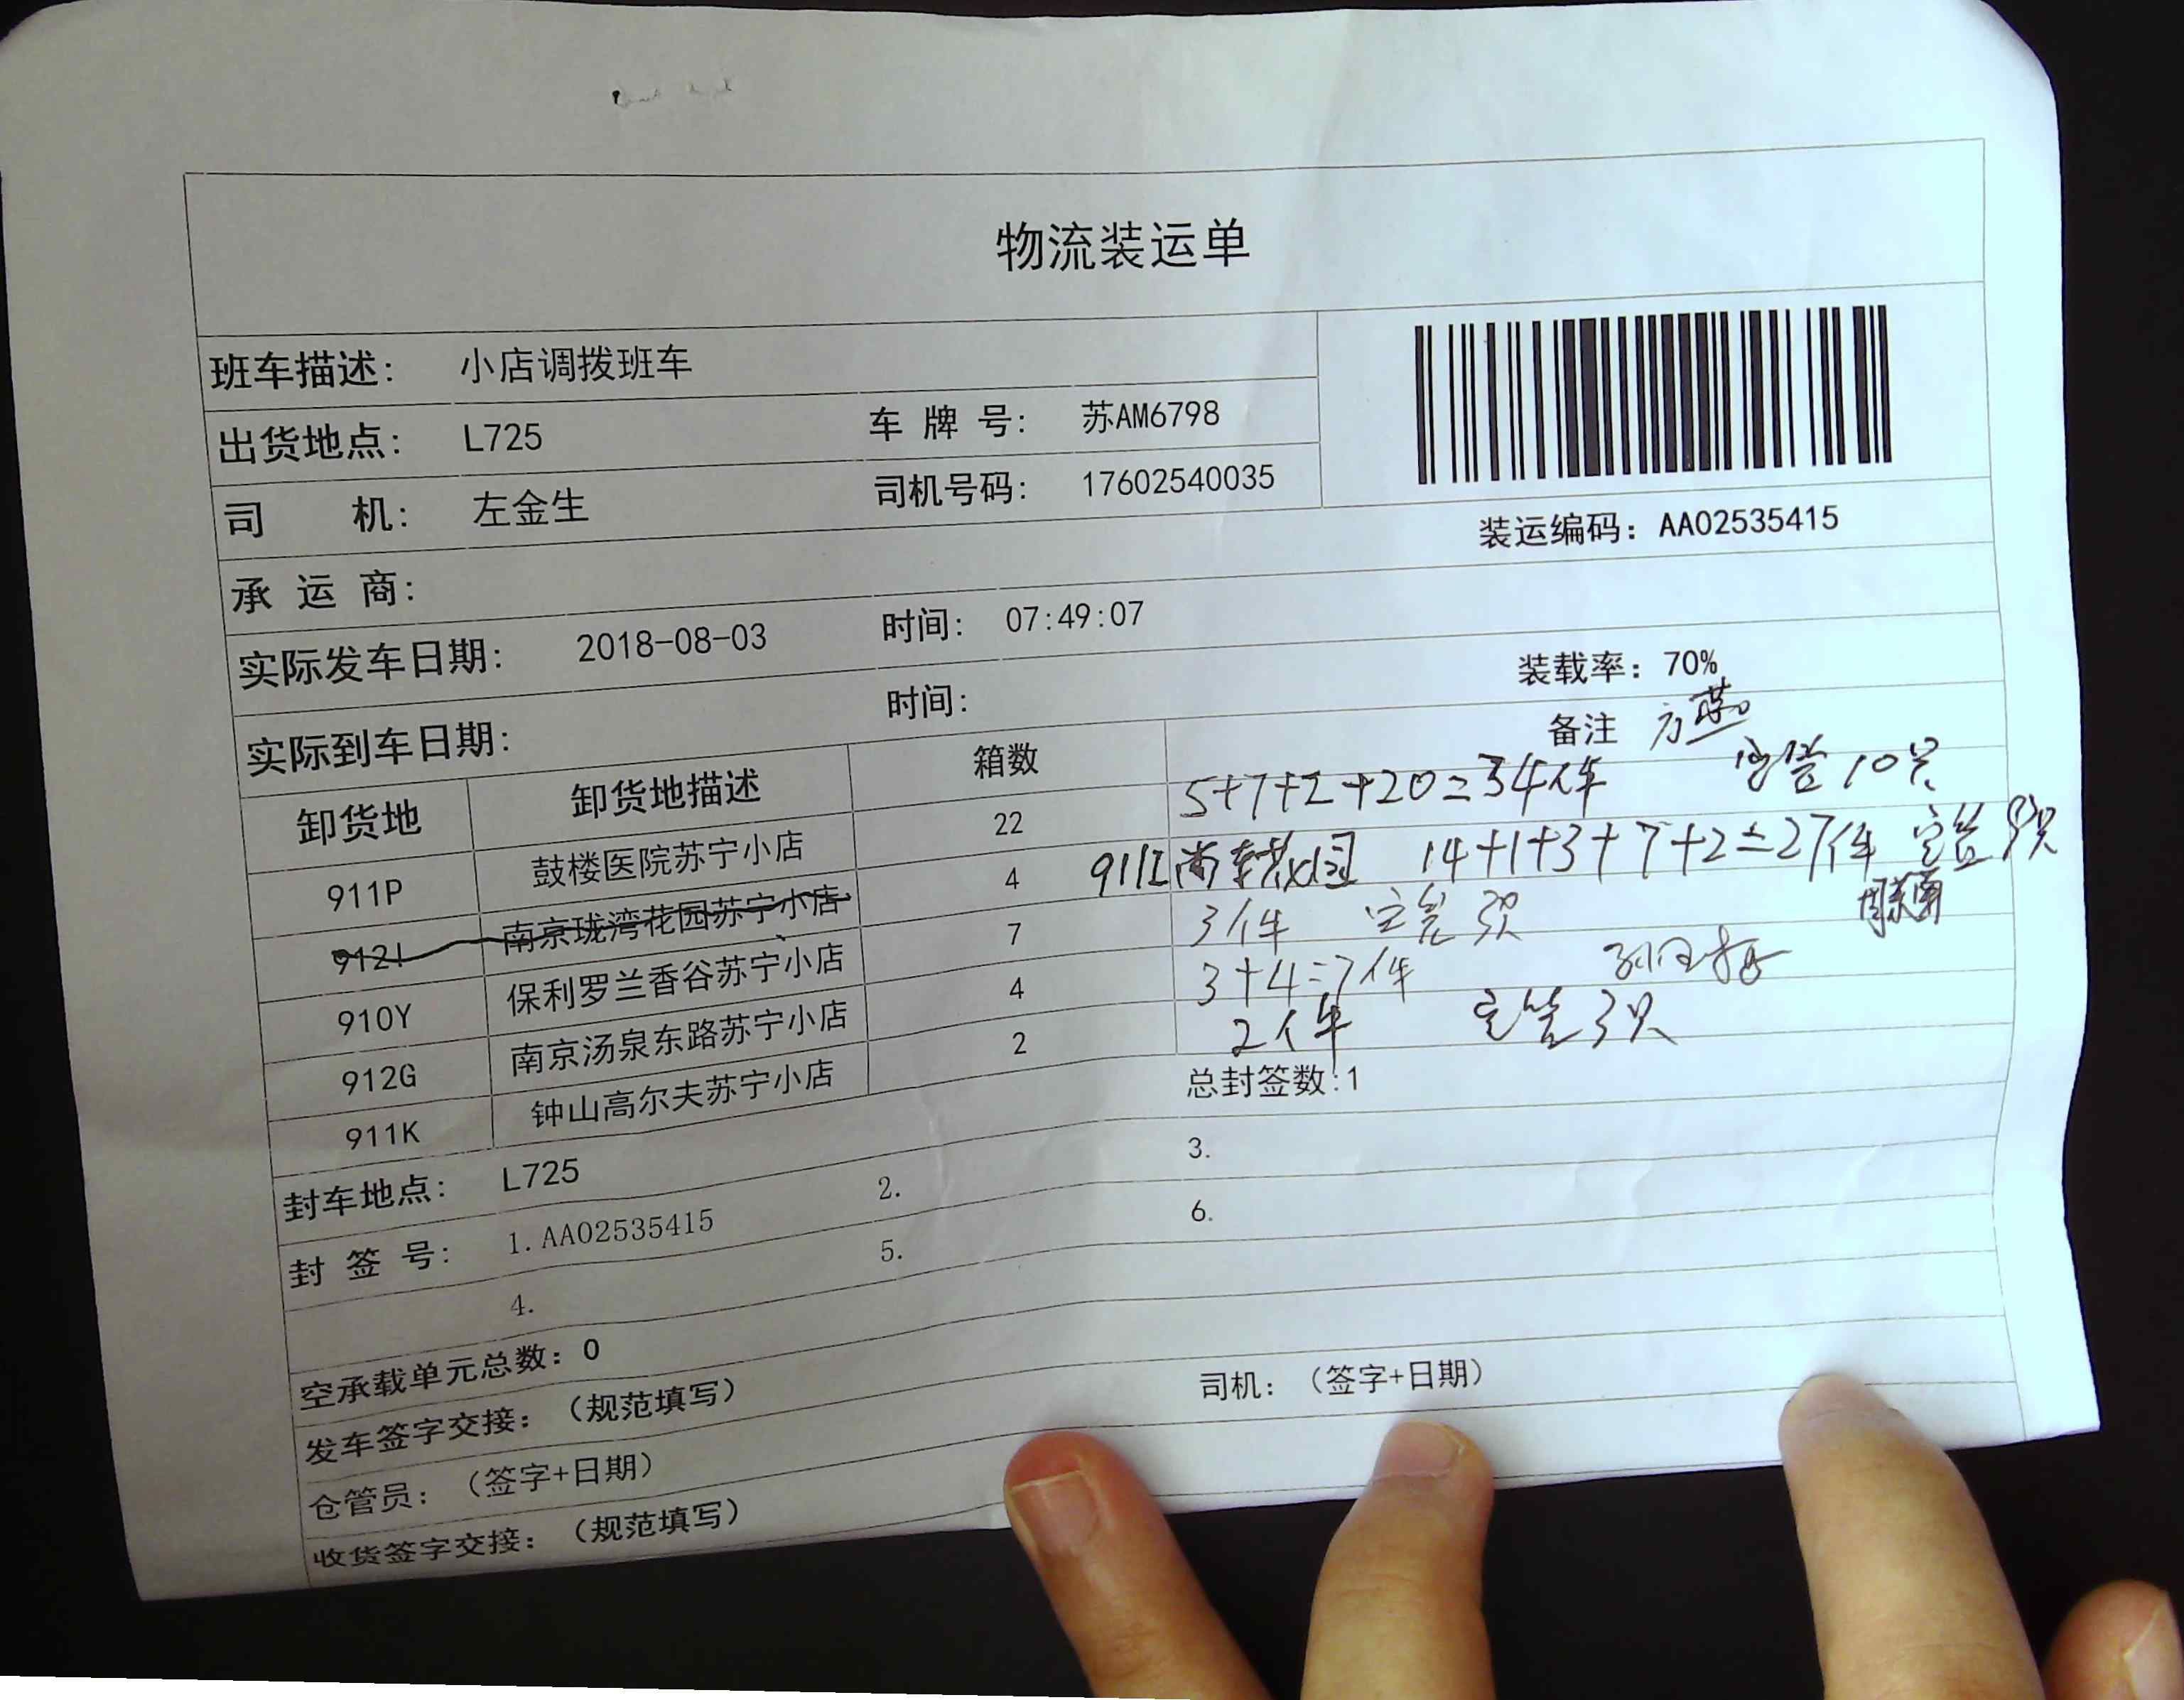 物流装运单
班车描述: 小店调拨班车
出货地点: L725 车 牌 号: 苏AM6798
司 机: 左金生 司机号码: 17602540035
装运编码: AA02535415
承 运 商:
实际发车日期: 2018-08-03 时间: 07:49:07
装载率: 70%
实际到车日期: 时间:
卸货地 卸货地描述 箱数 备注
911P 鼓楼医院苏宁小店 22 5+7+2+20=34件 空管10只
912I 南京珑湾花园苏宁小店 4 911I 14+1+3+7+2=27件
910Y 保利罗兰香谷苏宁小店 7 3件
912G 南京汤泉东路苏宁小店 4 3+4=7件
911K 钟山高尔夫苏宁小店 2 2件 空管3只
封车地点: L725 总封签数:1
封 签 号: 1.AA02535415 2. 3.
4. 5. 6.
空承载单元总数: 0
发车签字交接: (规范填写)
仓管员: (签字+日期) 司机: (签字+日期)
收货签字交接: (规范填写)